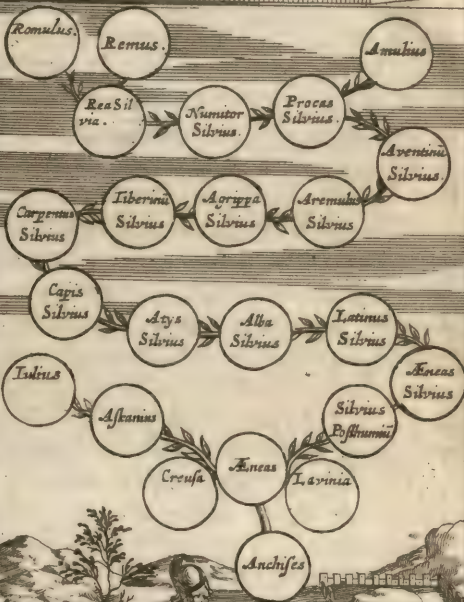 Romulus.
Remus.
Amulius
Rea Sil
via.
Numitor
Silvius.
Procas
Silvius.
Aventinũ
Silvius.
Carpentus
Silvius
Tiberinũ
Silvius
Agrippa
Silvius
Aremulus
Silvius
Capis
Silvius
Atys
Silvius
Alba
Silvius
Latinus
Silvius
Æneas
Silvius
Iulius
Aſkanius
Silvius
Poſthumiũ
Creuſa
Æneas
Lavinia
Anchiſes